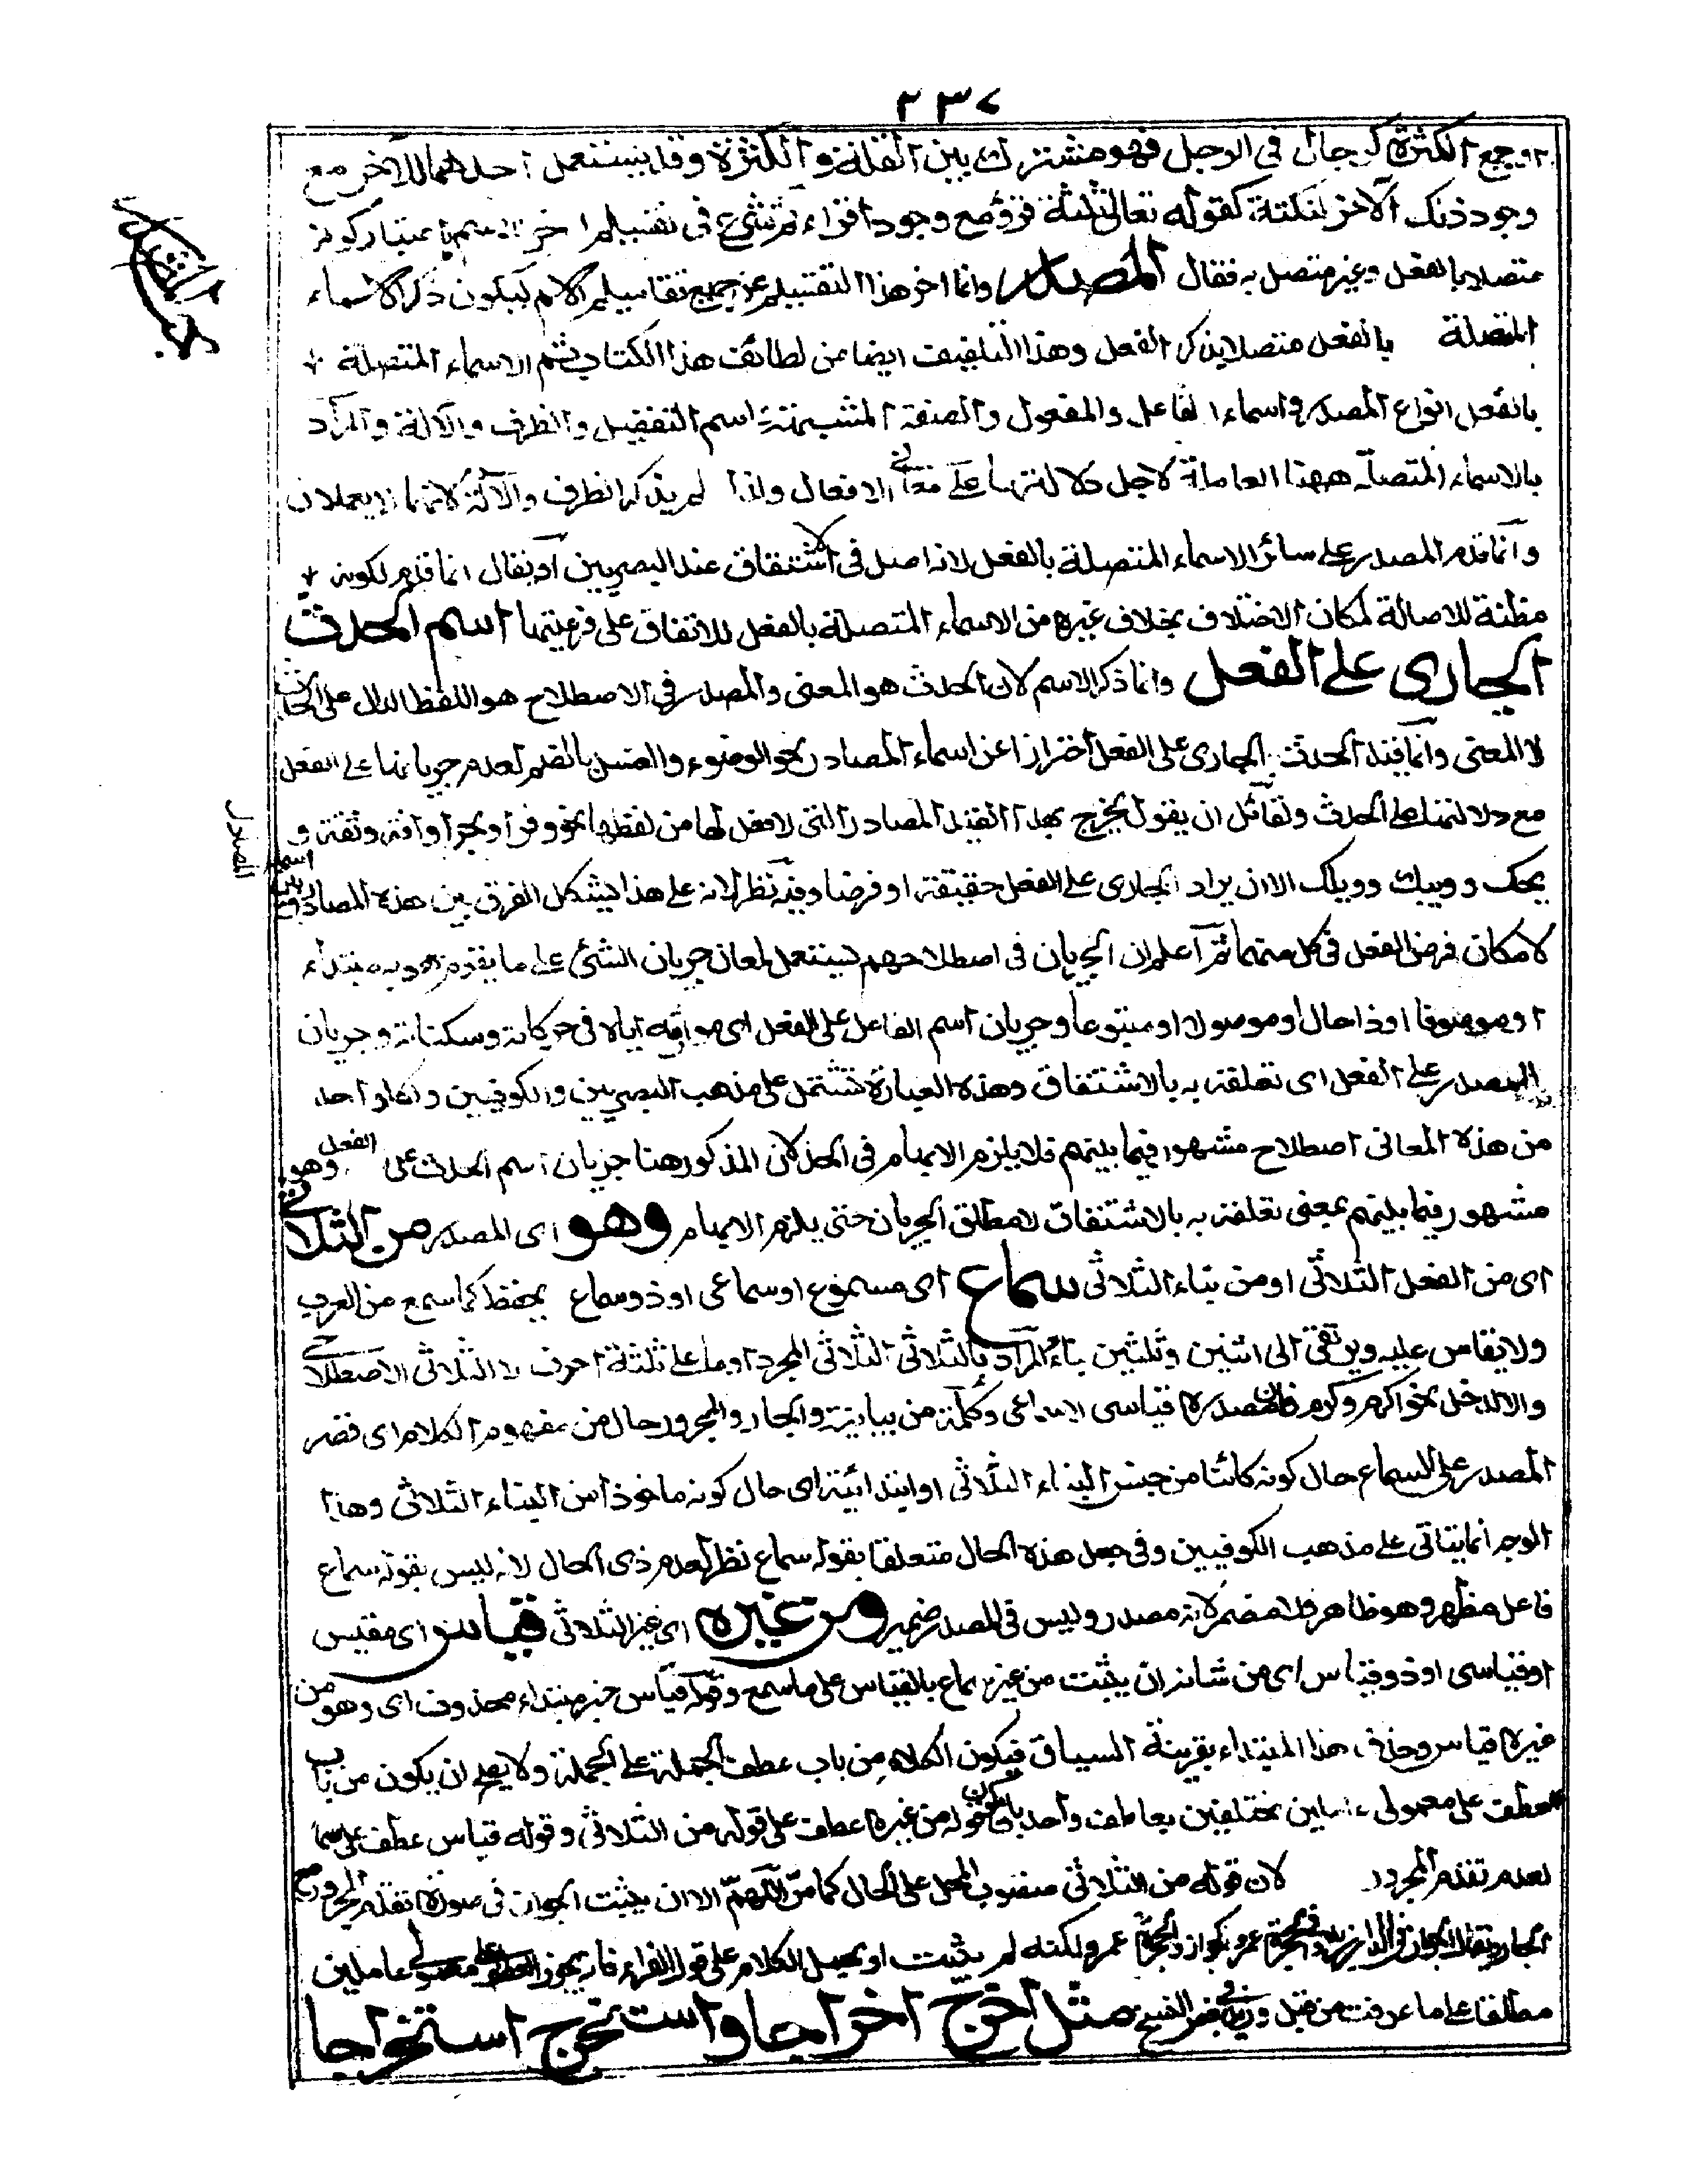 ٢٣٧
او جمع الكثرة كرجال فى الرجل فهو مشترك بين القلة والكثرة وقد يستعمل احدهما للآخر مع
وجود ذلك الآخر لنكتة كقوله تعالى ثلثة قروء مع وجود اقراء ثم شرع فى تقسيم آخر للاسم باعتبار كونه
متصلا بالفعل وغير متصل به فقال المصدر وانما اخر هذا التقسيم عن جميع تقاسيم الاسم ليكون ذكر الاسماء
المتصلة بالفعل متصلا بذكر الفعل وهذا التلفيف ايضا من لطائف هذا الكتاب ثم الاسماء المتصلة
بالفعل انواع المصدر واسماء الفاعل والمفعول والصفة المشبهة واسم التفضيل والظرف والآلة والمراد
بالاسماء المتصلة ههنا العاملة لاجل دلالتها على معانى الافعال ولذا لم يذكر الظرف والآلة لانهما لا يعملان
وانما قدم المصدر على سائر الاسماء المتصلة بالفعل لانه اصل فى الاشتقاق عند البصريين او يقال انما قدم لكونه
مظنة للاصالة لمكان الاختلاف بخلاف غيره من الاسماء المتصلة بالفعل للاتفاق على فرعيتها اسم الحدث
الجارى على الفعل وانما ذكر الاسم لان الحدث هو المعنى والمصدر فى الاصطلاح هو اللفظ الدال على الحدث
لا المعنى وانما قيد الحدث بالجارى على الفعل احترازا عن اسماء المصادر نحو الوضوء والغسل بالضم لعدم جريانها على الفعل
مع دلالتها على الحدث ولقائل ان يقول يخرج بهذا القيد المصادر التى لا فعل لها من لفظها نحو وفرا وبحرا وافة وتفة و
يحك وويبك وويلك الا ان يراد الجارى على الفعل حقيقة او فرضا وفيه نظر لانه على هذا يشكل الفرق بين هذه المصادر وبين اسماء المصادر
لامكان فرض الفعل فى كل منهما ثم اعلم ان الجريان فى اصطلاحهم يستعمل لمعان جريان الشئ على ما يقوم به مبتداء
او موصوفا او ذا حال او موصولا او متبوعا وجريان اسم الفاعل على الفعل اى موافقته اياه فى حركاته وسكناته وجريان
المصدر على الفعل اى تعلقه به بالاشتقاق وهذه العبارة تشتمل على مذهب البصريين والكوفيين وكل واحد
من هذه المعانى اصطلاح مشهور فيما بينهم فلا يلزم الابهام فى الحد لان المذكور هنا جريان اسم الحدث على الفعل وهو
مشهور فيما بينهم بمعنى تعلقه به بالاشتقاق لا مطلق الجريان حتى يلزم الابهام وهو اى المصدر من الثلاثى
اى من الفعل الثلاثى او من بناء الثلاثى سماع اى مسموع او سماعى او ذو سماع يحفظ كما سمع من العرب
ولا يقاس عليه ويرتقى الى اثنين وثلثين بناء المراد بالثلاثى الثلاثى المجرد او ما على ثلثة احرف لا الثلاثى الاصطلاحى
والا لدخل نحو اكرم وكرم فان مصدره قياسى لا سماعى وكلمة من بيانية والجار والمجرور حال من مفهوم الكلام اى قصر
المصدر على السماع حال كونه كائنا من جنس البناء الثلاثى او ابتدائية اى حال كونه ماخوذا من البناء الثلاثى وهذا
الوجه انما يتاتى على مذهب الكوفيين وفى جعل هذه الحال متعلقا بقوله سماع نظر لعدم ذى الحال لانه ليس بقوله سماع
فاعل مظهر وهو ظاهر ولا مضمر لانه مصدر وليس فى المصدر ضمير ومن غيره اى غير الثلاثى قياس اى مقيس
او قياسى او ذو قياس اى من شانه ان يثبت من غير سماع بالقياس على ما سمع وقوله قياس خبر مبتداء محذوف اى وهو من
غيره قياس وحذف هذا المبتداء بقرينة السياق فيكون الكلام من باب عطف الجملة على الجملة ولا يصح ان يكون من باب
العطف على معمولى عاملين مختلفين بعاطف واحد بان يكون قوله من غيره عطف على قوله من الثلاثى وقوله قياس عطف على سماع
لعدم تقدم المجرور لان قوله من الثلاثى منصوب المحل على الحال كما مر اللهم الا ان يثبت الجواز فى صورة تقدم المجرور مع
الجار عمرو ولكنه لم يثبت او يحمل الكلام على قول الفراء فانه يجوز العطف على معمولى عاملين
مطلقا على ما عرفت من قبل وفى بعض النسخ مثل اخرج اخراجا واستخرج استخراجا